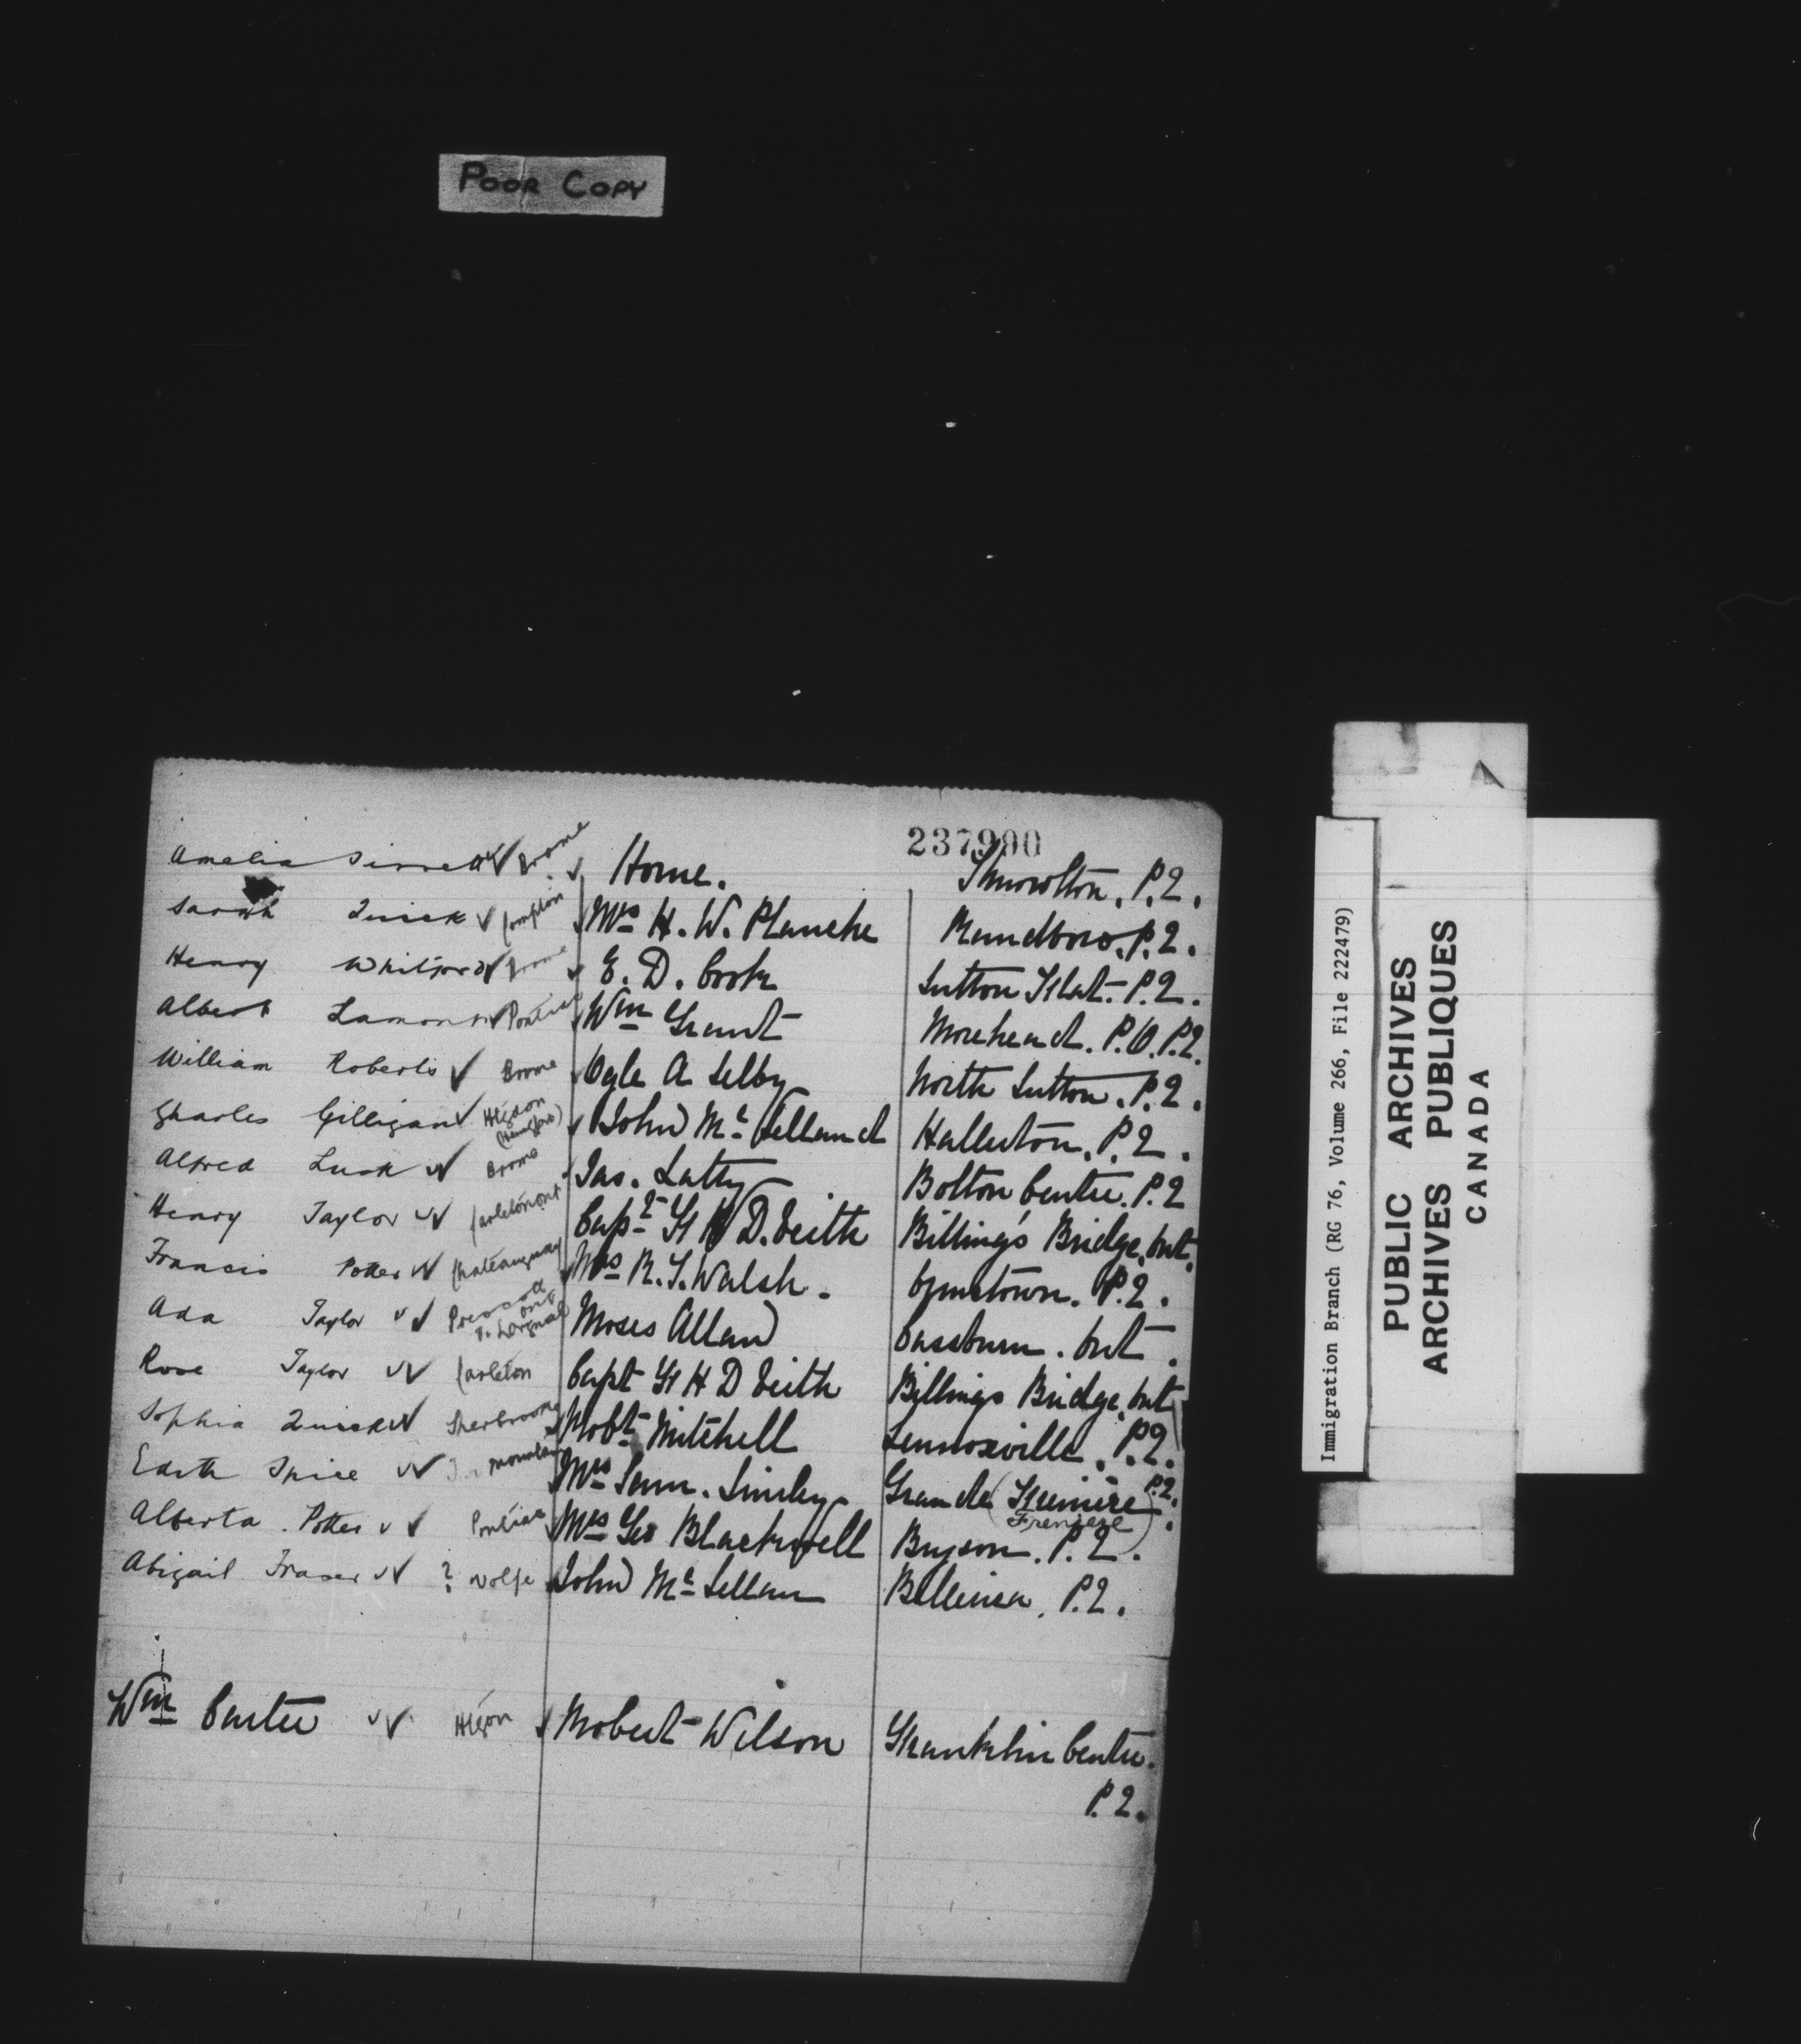 POOR COPY
237990
Amelia ✓ Brome ✓ Home. Knowlton. P.Q.
Sarah Quick ✓ Compton ✓ Mrs H. W. Planche Randboro. P.Q.
Henry Whitford ✓ Brome ✓ E. D. Cook Sutton Flat. P.Q.
Albert Lamont ✓ Pontiac ✓ Wm Grant Morehead. P.O. P.Q.
William Roberts ✓ Brome ✓ Ogle A Selby North Sutton. P.Q.
Charles Gilligan ✓ Htgdon ✓ John McClelland Hallerton. P.Q.
Alfred Lusk ✓ Brome ✓ Jas. Latty Bolton Centre. P.Q
Henry Taylor ✓ Carleton ont Capt H D. Veith Billing's Bridge, Ont.
Francis Potter ✓ Chateauguay ✓ Mrs R. J. Walsh. Ormstown. P.Q.
Ada Taylor ✓ Prescott ont L'Orignal Moses Allan Cassburn. Ont.
Rose Taylor ✓ Carleton Capt H D Veith Billings Bridge, Ont
Sophia Quick ✓ Sherbrooke ✓ Robt Mitchell Lennoxville. P.Q.
Edith Mrs Sam. Grande (Freniere) P.Q.
Freniere
Alberta Potter ✓ Pontiac ✓ Mrs Geo Blackwell Bryson. P.Q.
Abigail Fraser ✓ ? Wolfe John McLellan P.Q.
Wm Carter ✓ Htgdon ✓ Robert Wilson Franklin Centre.
P.Q.
Immigration Branch (RG 76, Volume 266, File 222479)
PUBLIC ARCHIVES
ARCHIVES PUBLIQUES
CANADA